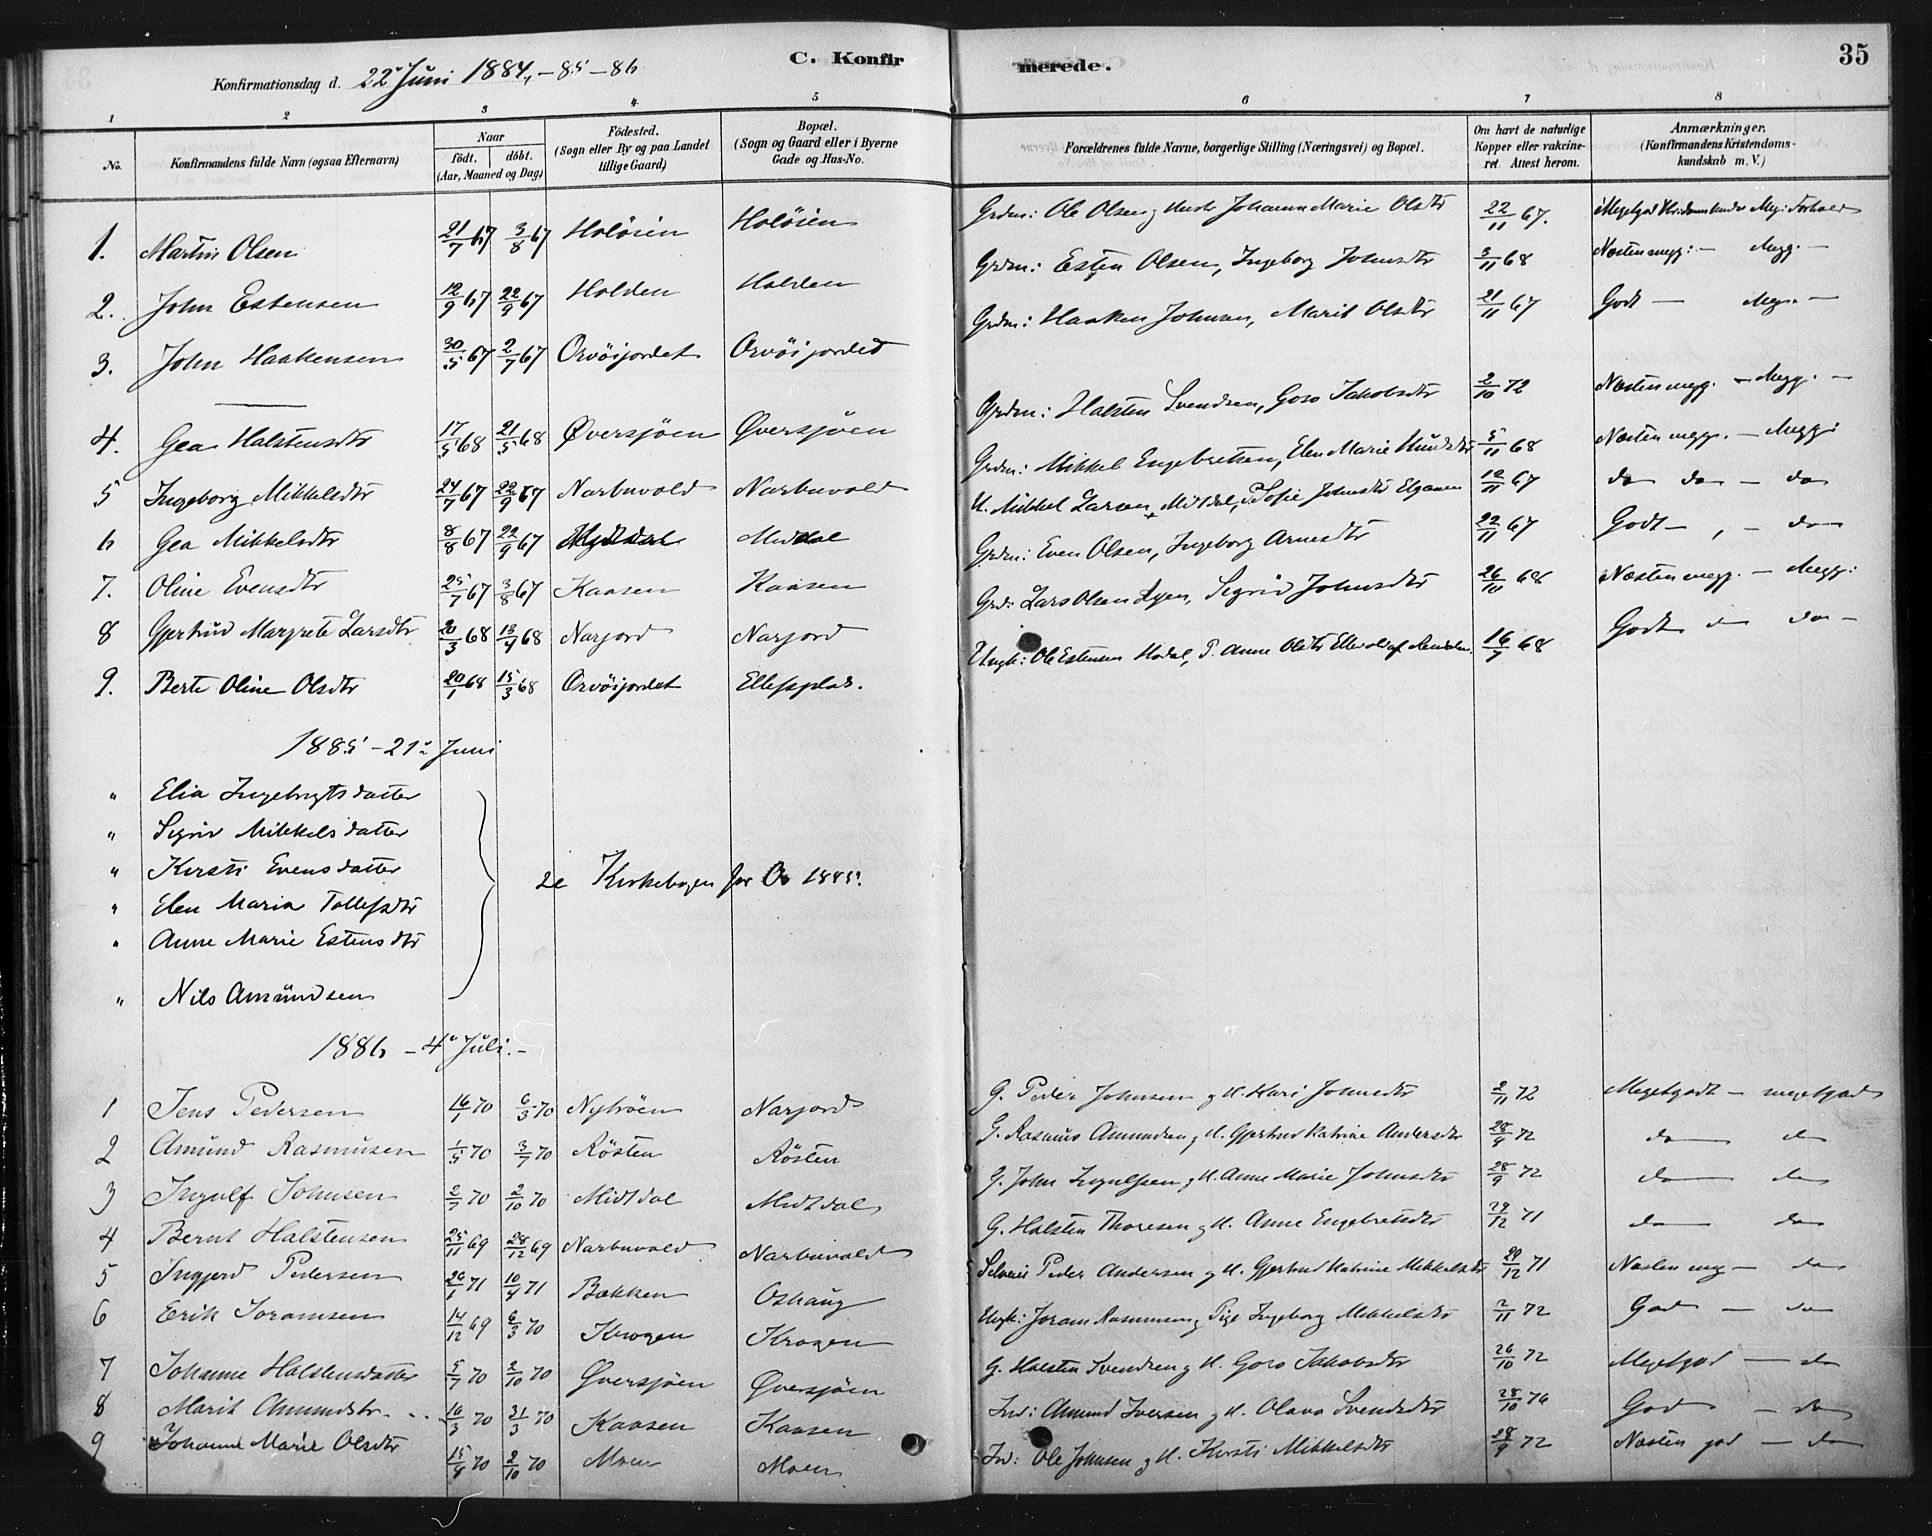 C. Konfirmerede.
35
Konfirmationsdag d. 22 Juni 1884, -85-86
1 2 3 4 5 6 7 8
No. Konfirmandens fulde Navn (ogsaa Efternavn) Naar födt. döbt. (Aar, Maaned og Dag) Födested. (Sogn eller By og paa Landet tillige Gaard) Bopæl. (Sogn og Gaard eller i Byerne Gade og Hus-No. Forældrenes fulde Navne, borgerlige Stilling (Næringsvei) og Bopæl. Om havt de naturlige Kopper eller vakcineret. Attest herom. Anmærkninger. (Konfirmandens Kristendomskundskab m. V.)
1. Martin Olsen 21/7 67 3/8 67 Holöien Holöien Grdm: Ole Olsen og Hustr Johanna Marie Olsdtr 22/11 67.
2. John Estensen 12/9 67 22/9 67 Holden Holden Grdm: Esten Olsen, Ingeborg Johnsdtr 3/11 68 Næsten megg: - Megg. -
3. John Haakensen 30/5 67 2/7 67 Orvöijordet Orvöijordet Grdm: Haaken Johnsen, Marit Olsdtr 21/11 67 Godt - Meg. -
4. Gea Halstensdtr 17/5 68 21/5 68 Øversjöen Øversjöen Grdm: Halsten Svendsen, Goro Jakobsdtr 2/10 72 Næsten megg. - Megg. -
5 Ingeborg Mikkelsdtr 24/7 67 22/9 67 Narbuvold Narbuvold Grdm: Mikkel Engebretsen, Elen Marie 5/11 68 Næsten megg. - Megg:
6 Gea Mikkelsdtr 8/8 67 22/9 67 Midtdal Middal U. Mikkel Larsen Mitdal, P. Sofie Johnsdtr Elgaaen 12/11 67 do do - do
7. Oline Evensdtr 25/7 67 3/8 67 Kaasen Kaasen Grdm: Even Olsen, Ingeborg Arnesdtr 22/11 67 Godt - , - do
8 Gjertrud Margrete Larsdtr 20/3 68 13/4 68 Narjord Narjord Grd: Lars Olsen Lyen, Sigrid Johnsdtr 26/10 68 Næsten megg. - Megg:
9. Berte Oline Olsdtr 20/1 68 15/3 68 Orvöijordet Ellefsplas. Ungk: Ole Estensen Hodal, P. Anne Olsdtr 16/7 68 Godt do do -
1885 - 21 Juni
" Elia Ingebrigtsdatter
" Sigrid Mikkelsdatter
" Kirsti Evensdatter
se Kirkebogen for Os 1885.
" Elen Maria Tollefsdtr
" Anne Marie Estensdtr
" Nils Amundsen
1886 - 4 Juli. -
1 Jens Pedersen 16/1 70 6/3 70 Nyhröen Narjord G. Peder Johnsen og H. Kari Johnsdtr 2/11 72 Megetgodt - megetgod
2 Amund Rasmusen 1/5 70 3/7 70 Rösten Rösten G. Rasmus Amundsen og H. Gjertrud Katrine Andersdtr 28/9 72 do do
3 Ingulf Johnsen 2/7 70 2/10 70 Midtdal Midtdal G. John Ingulfsen og H. Anne Marie Johnsdtr 28/9 72 do do
4 Bernt Halstensen 25/11 69 28/12 69 Narbuvold Narbuvold G. Halsten Thoresen og H. Anne Engebretsdtr 29/12 71 do do
5 Ingjerd Pedersen 26/1 71 10/4 71 Bakken Oshaug Selveier Peder Andersen og H. Gjertrud Katrine Mikkelsdtr 29/12 71 Næsten mg - do
6 Erik Joramsen 14/12 69 6/3 70 Krogen Krogen Ungk: Joram Rasmusen og Pige Ingeborg Mikkelsdtr 2/11 72 God - do
7 Johanne Halstensdatter 5/7 70 2/10 70 Øversjöen Øversjöen G. Halsten Svendsen og H. Goro Jakobsdtr 26/10 72 Megetgod - do
8 Marit Amundsdtr. 16/3 70 31/3 70 Kaasen Kaasen Ind: Amund Iversen og H. Olava Svendsdtr 28/10 76 God - do
9 Johanne Marie Olsdtr 15/9 70 2/10 70 Moen Moen Ind: Ole Johnsen og H. Kirsti Mikkelsdtr 28/9 72 Næsten god - do